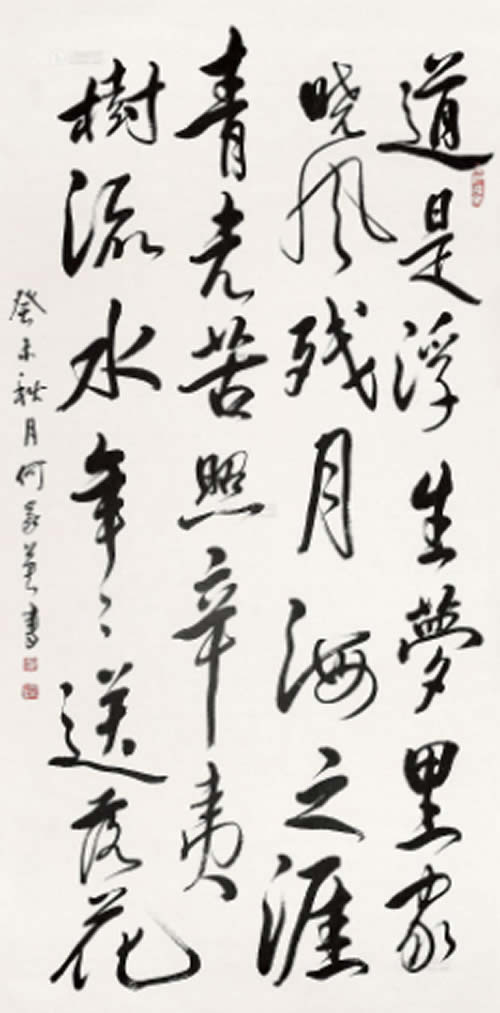 道是浮生夢里家
晓风残月海之涯
青光苦照辛夷
樹流水年々送落花
癸未秋月何家英書